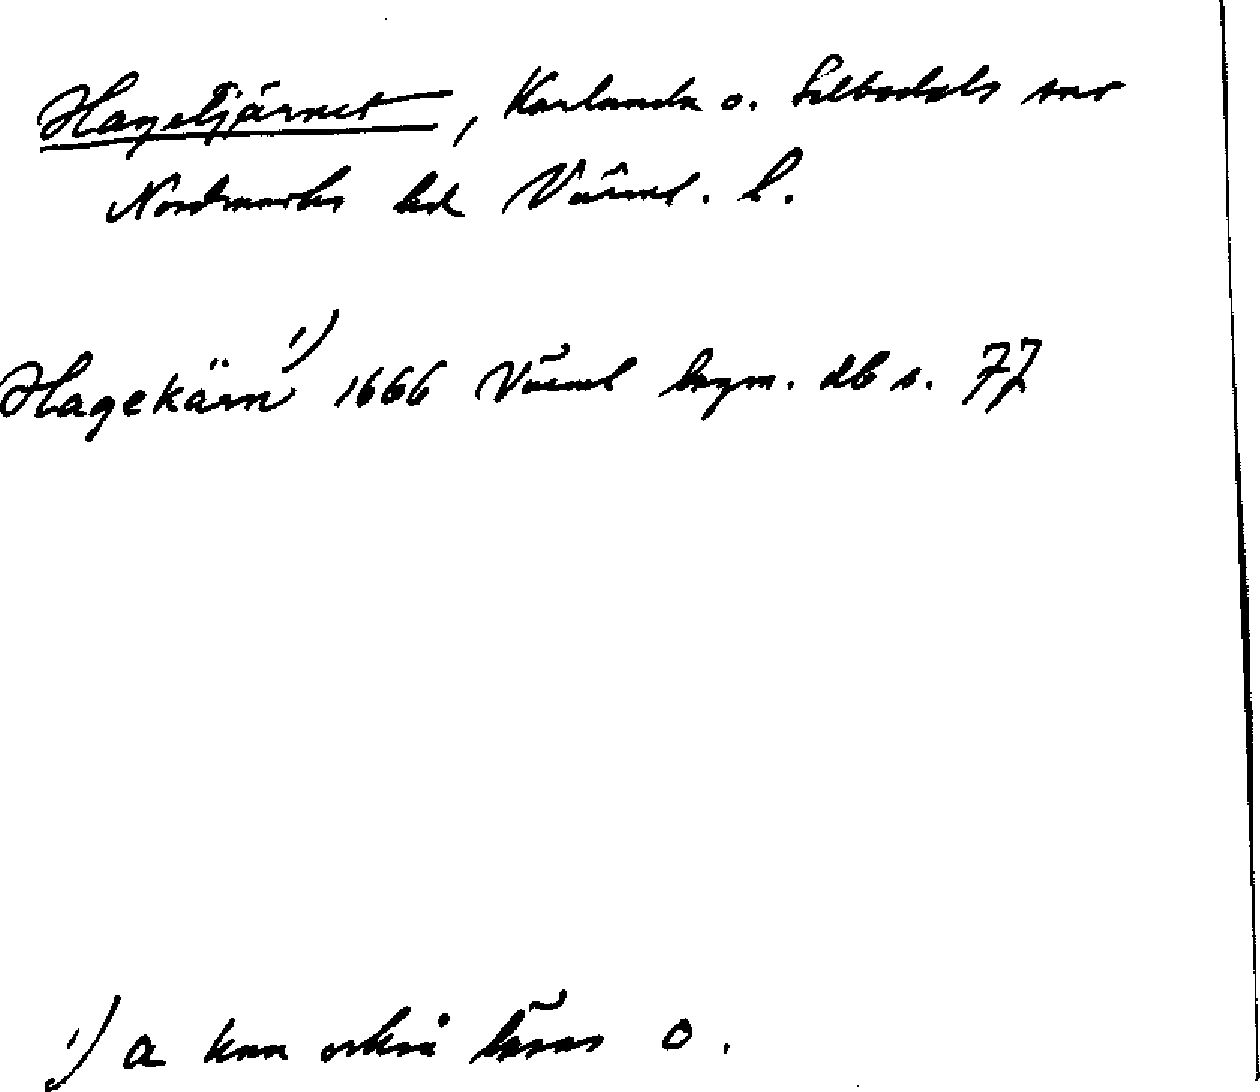 Hagetjärnet, Karlanda o. Silbodals snr
Nordmarks hd Värml. l.
Hagekärn 1) 1666 Värml bergm. db s. 77
1) a kan också läsas o.